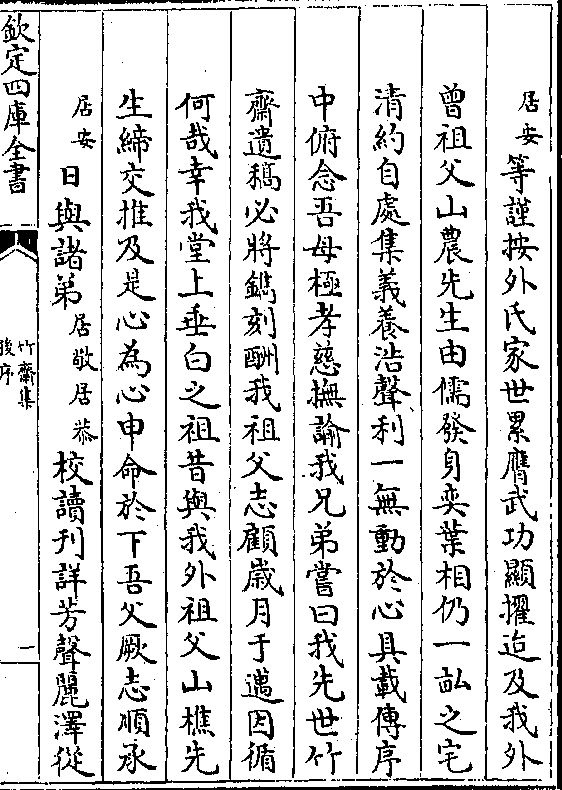 居安等謹按外氏家世累膺武功顯擢迨及我外
曾祖父山農先生由儒發身奕葉相仍一畝之宅
清約自處集義養浩聲利一無動於心具載傳序
中俯念吾母極孝慈撫諭我兄弟嘗曰我先世竹
齋遺稿必將鐫刻酬我祖父志顧歳月于邁因循
何哉幸我堂上垂白之祖昔與我外祖父山樵先
生締交推及是心為心申命於下吾父厥志順承
居安日與諸弟居敬居恭校讀刊詳芳聲麗澤從
欽定四庫全書
竹齋集
後序
一